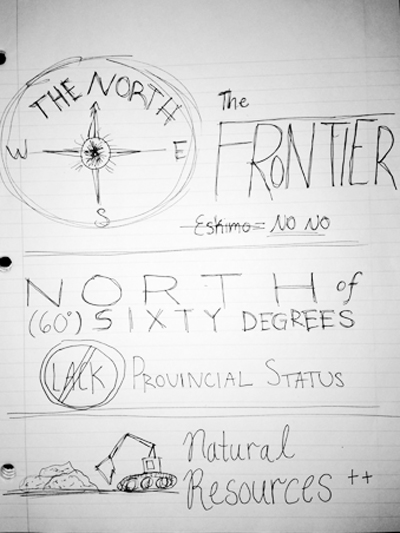 THE NORTH
W E
S
The
FRONTIER
Eskimo = NO NO
NORTH of
(60°) SIXTY DEGREES
LACK PROVINCIAL STATUS
Natural
Resources ++